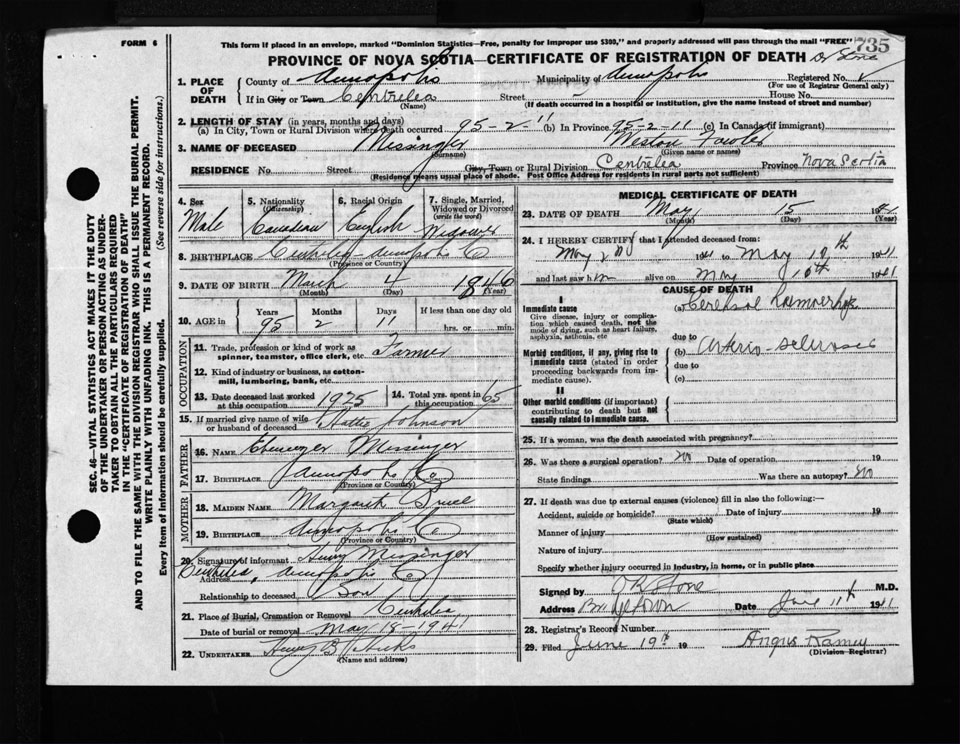 FORM 6
This form if placed in an envelope, marked "Dominion Statistics—Free, penalty for improper use $300," and properly addressed will pass through the mail "FREE"
735
PROVINCE OF NOVA SCOTIA—CERTIFICATE OF REGISTRATION OF DEATH
Dr Stone
1. PLACE OF DEATH
County of Annapolis Municipality of Annapolis Registered No.
(For use of Registrar General only)
If in City or Town Centrelea Street House No.
(Name) (If death occurred in a hospital or institution, give the name instead of street and number)
2. LENGTH OF STAY (in years, months and days)
(a) In City, Town or Rural Division where death occurred 95-2-11 (b) In Province 95-2-11 (c) In Canada (if immigrant)
3. NAME OF DECEASED Messinger Weston Fowler
(Surname) (Given name or names)
RESIDENCE No. Street City, Town or Rural Division Centrelea Province Nova Scotia
(Residence means usual place of abode. Post Office Address for residents in rural parts not sufficient)
4. Sex Male
5. Nationality (Citizenship) Canadian
6. Racial Origin English
7. Single, Married, Widowed or Divorced (write the word) Widower
8. BIRTHPLACE Annapolis Co
(Province or Country)
9. DATE OF BIRTH March 4 1846
(Month) (Day) (Year)
10. AGE in Years Months Days If less than one day old
95 2 11 hrs. or min.
OCCUPATION
11. Trade, profession or kind of work as spinner, teamster, office clerk, etc. Farmer
12. Kind of industry or business, as cotton-mill, lumbering, bank, etc.
13. Date deceased last worked at this occupation 1925
14. Total yrs. spent in this occupation 65
15. If married give name of wife or husband of deceased Hattie Johnson
FATHER
16. NAME Ebenezer Messinger
17. BIRTHPLACE Annapolis Co
(Province or Country)
MOTHER
18. MAIDEN NAME Margaret
19. BIRTHPLACE Annapolis Co
(Province or Country)
20. Signature of informant Henry Messinger
Address Centrelea, Annapolis Co
Relationship to deceased Son
21. Place of Burial, Cremation or Removal Centrelea
Date of burial or removal May 18-1941
22. UNDERTAKER Hicks
(Name and address)
MEDICAL CERTIFICATE OF DEATH
23. DATE OF DEATH May 15 1941
(Month) (Day) (Year)
24. I HEREBY CERTIFY that I attended deceased from:
May 2nd 1941 to May 10th 1941
and last saw him alive on May 10th 1941
CAUSE OF DEATH
I
Immediate cause
Give disease, injury or complication which caused death, not the mode of dying, such as heart failure, asphyxia, asthenia, etc
(a)
due to
Morbid conditions, if any, giving rise to immediate cause (stated in order proceeding backwards from immediate cause).
(b)
due to
(c)
II
Other morbid conditions (if important) contributing to death but not causally related to immediate cause.
25. If a woman, was the death associated with pregnancy?
26. Was there a surgical operation? no Date of operation 19
State findings Was there an autopsy? no
27. If death was due to external causes (violence) fill in also the following:—
Accident, suicide or homicide? Date of injury 19
(State which)
Manner of injury
(How sustained)
Nature of injury
Specify whether injury occurred in industry, in home, or in public place
Signed by Stone M.D.
Address Bridgetown Date June 11th 1941
28. Registrar's Record Number
29. Filed June 19th 19 Angus Ramey
(Division Registrar)
SEC. 46—VITAL STATISTICS ACT MAKES IT THE DUTY
OF THE UNDERTAKER OR PERSON ACTING AS UNDER-
TAKER TO OBTAIN ALL THE PARTICULARS REQUIRED
IN THE "CERTIFICATE OF REGISTRATION OF DEATH"
AND TO FILE THE SAME WITH THE DIVISION REGISTRAR WHO SHALL ISSUE THE BURIAL PERMIT.
WRITE PLAINLY WITH UNFADING INK. THIS IS A PERMANENT RECORD.
Every item of information should be carefully supplied. (See reverse side for instructions.)